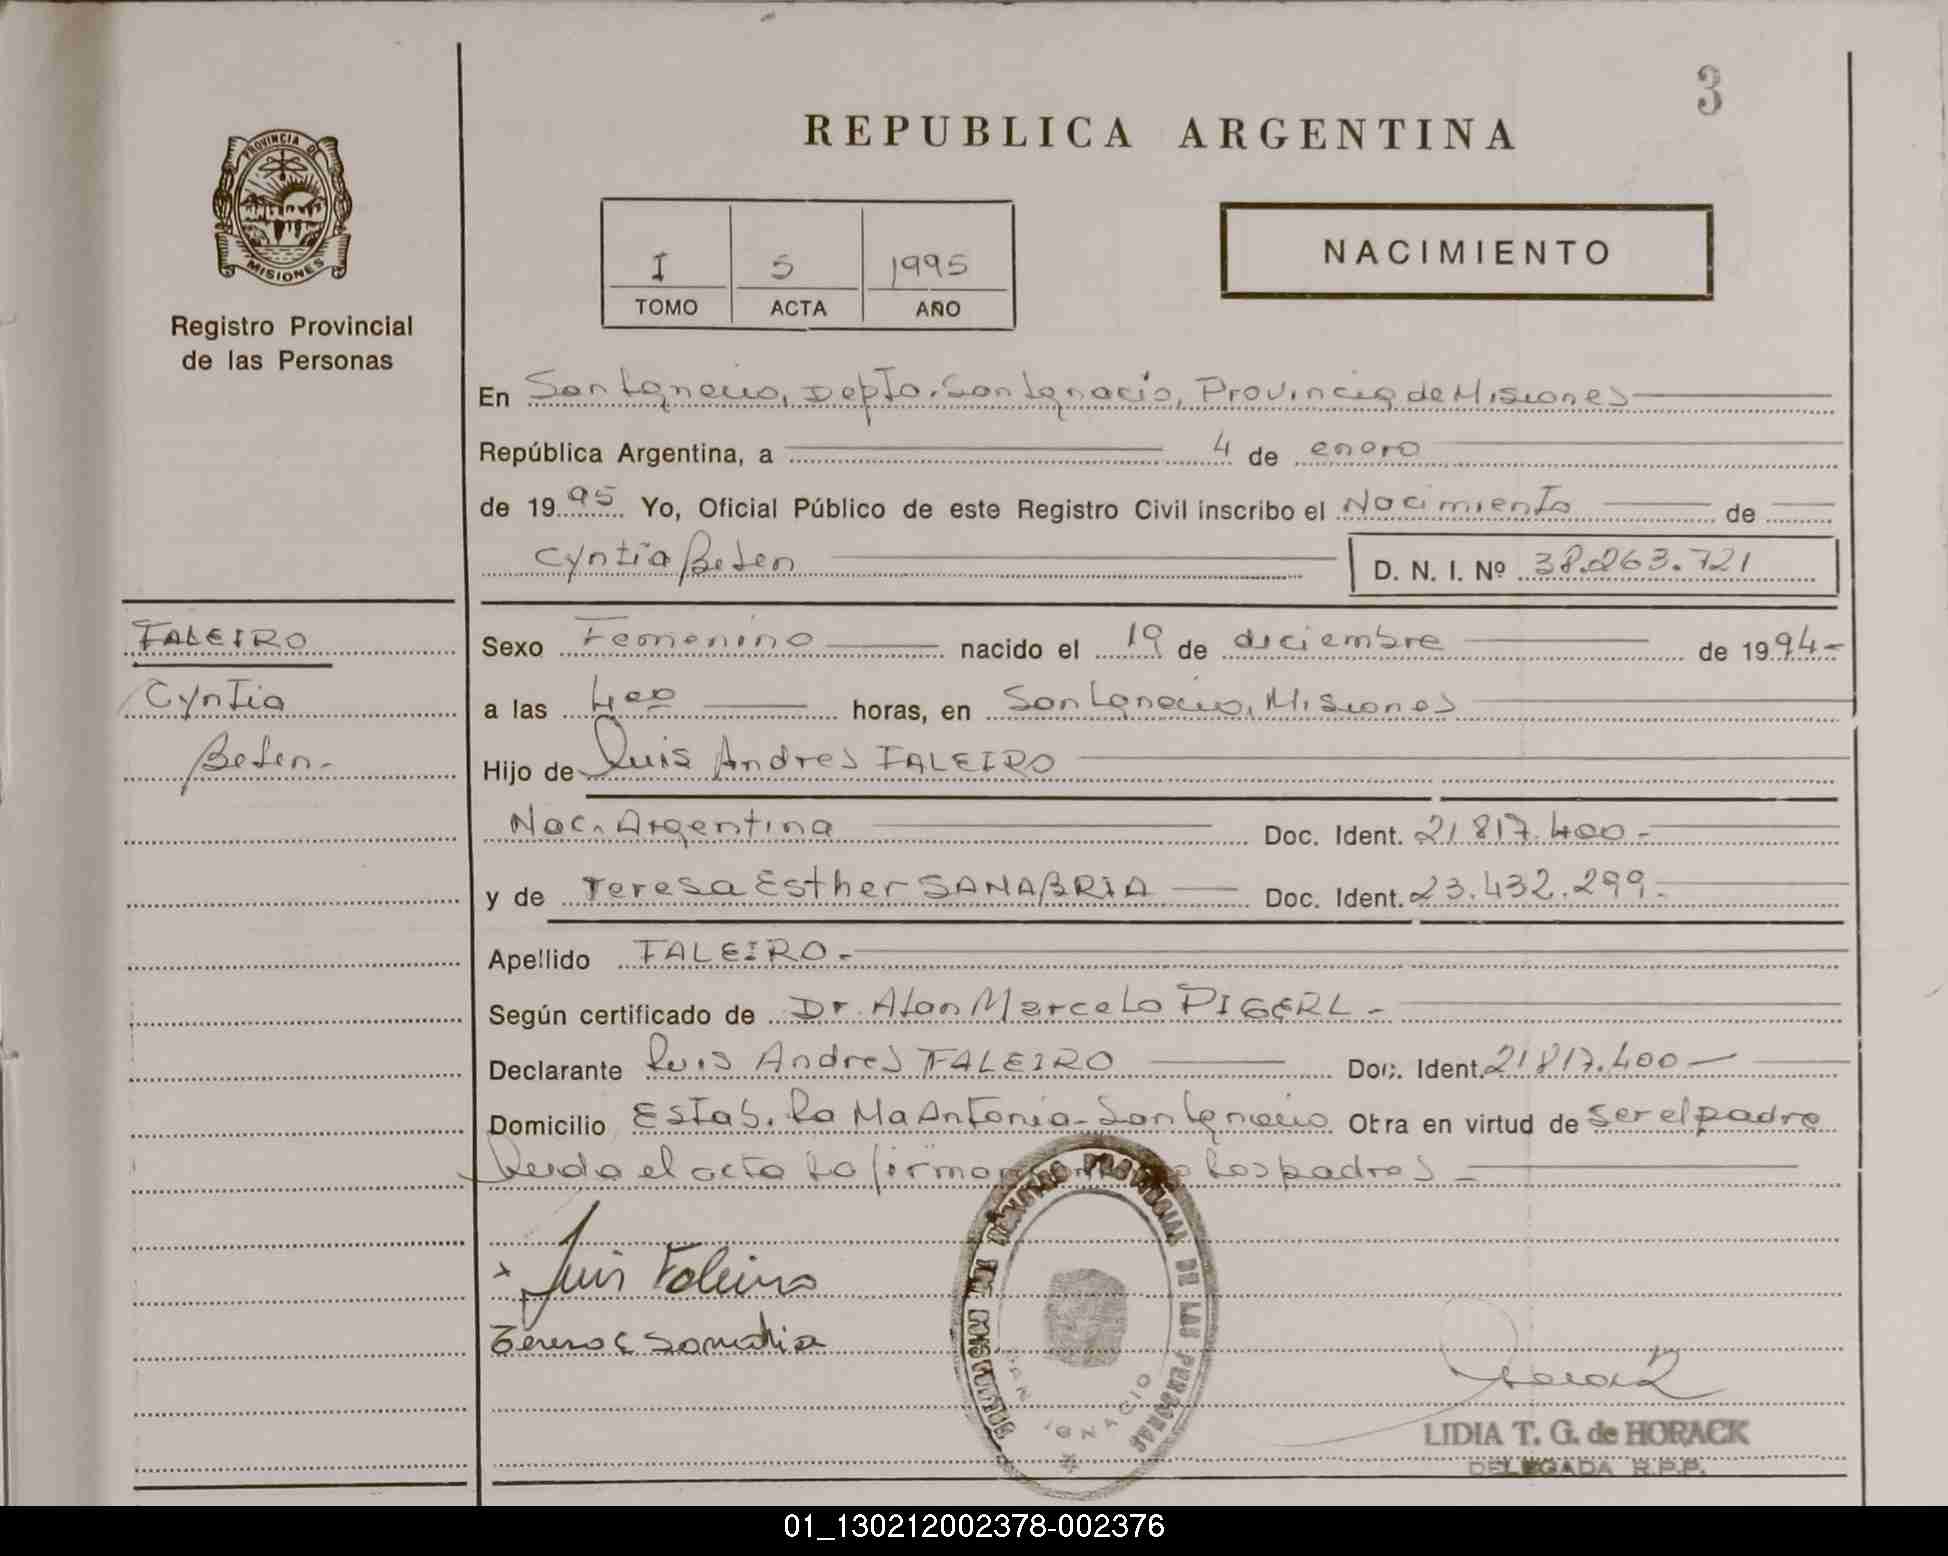 3
REPUBLICA ARGENTINA
PROVINCIA DE
MISIONES
Registro Provincial
de las Personas
I 5 1995
TOMO ACTA AÑO
NACIMIENTO
En San Ignacio, Depto. San Ignacio, Provincia de Misiones
República Argentina, a 4 de enero
de 1995 Yo, Oficial Público de este Registro Civil inscribo el Nacimiento de
Cyntia Belen D. N. I. Nº 38.263.721
FALEIRO
Cyntia
Belen-
Sexo Femenino nacido el 19 de diciembre de 1994-
a las 4oo horas, en San Ignacio, Misiones
Hijo de Luis Andres FALEIRO
Nac. Argentina Doc. Ident. 21817.400-
y de Teresa Esther SANABRIA Doc. Ident. 23.432.299-
Apellido FALEIRO-
Según certificado de Dr. Alan Marcelo PIGERL-
Declarante Luis Andres FALEIRO Doc. Ident. 21817.400-
Domicilio Estab. La Ma Antonia- San Ignacio Obra en virtud de ser el padre
Leida el acta la firman los padres-
x Luis Faleiro
REGISTRO PROVINCIAL DE LAS PERSONAS
SAN IGNACIO
LIDIA T. G. de HORACK
DELEGADA R.P.P.
01_130212002378-002376